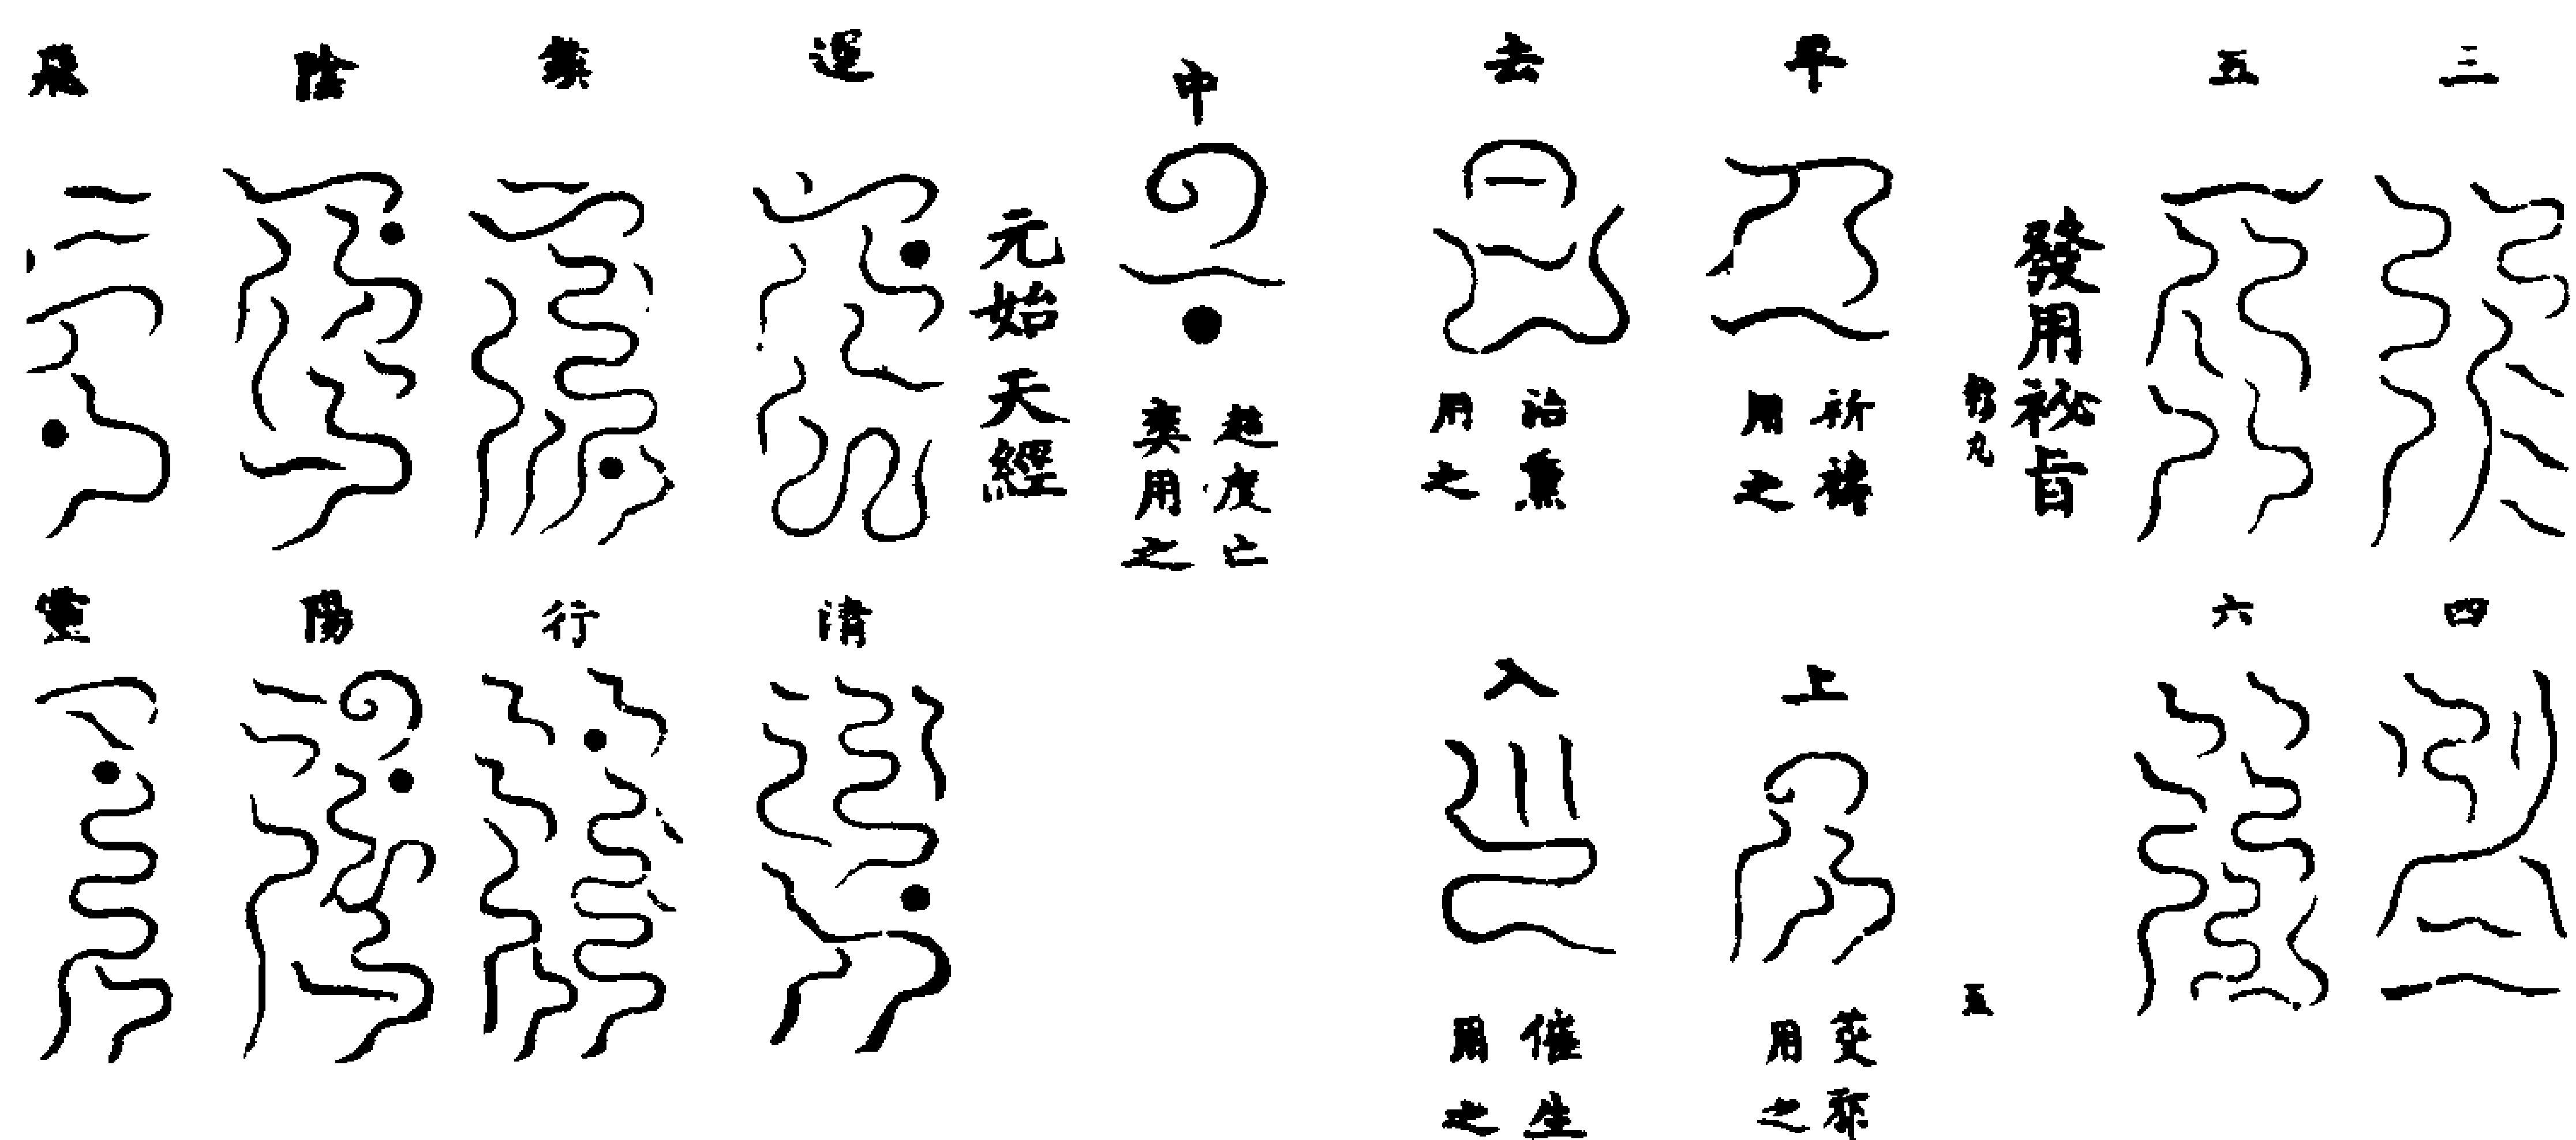 三
四
五
六
發用祕旨
五
平
祈禱
用之
上
用之
去
治
用之
入
催生
用之
中
超度亡
用之
元始天經
運
清
行
陰
陽
飛
靈